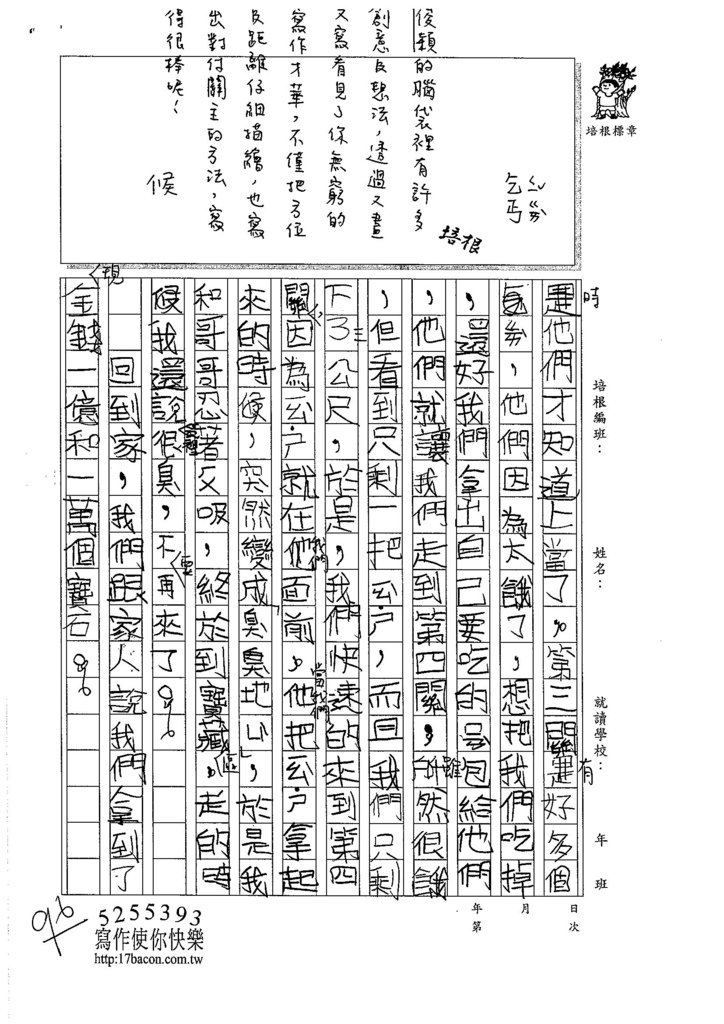 俊穎的腦袋裡有許多
創意及想法，透過又畫
又寫看見了你無窮的
寫作才華，不僅把方位
及距離仔細描繪，也寫
出對付關主的方法，寫
得很棒呢！
候
ㄙㄞ
乞丐
培根
培根標章
時
是他們才知道上當了。第三關是好多個
有
乞丐，他們因為太餓了，想把我們吃掉
，還好我們拿出自己要吃的ㄇㄧㄢˋ包給他們
，他們就讓我們走到第四關，所然很餓
雖
，但看到只剩一把ㄙㄨㄛˇㄕ，而且我們只剩
下了三公尺，於是，我們快速的來到第四
關因為ㄙㄨㄛˇㄕ就在他面前。他把ㄙㄨㄛˇㄕ拿起
我們
當我們
來的時候，突然變成「臭臭地ㄩˋ」，於是我
和哥哥忍著ㄈㄨˊ吸，終於到寶藏。走的時
區
候我還說很臭，不再來了。
要
回到家，我們跟家人說我們拿到了
現
金錢一億和一萬個寶石。
培根編班：
姓名：
就讀學校：
年
班
日
次
月
年
第
96
5255393
寫作使你快樂
http:17bacon.com.tw